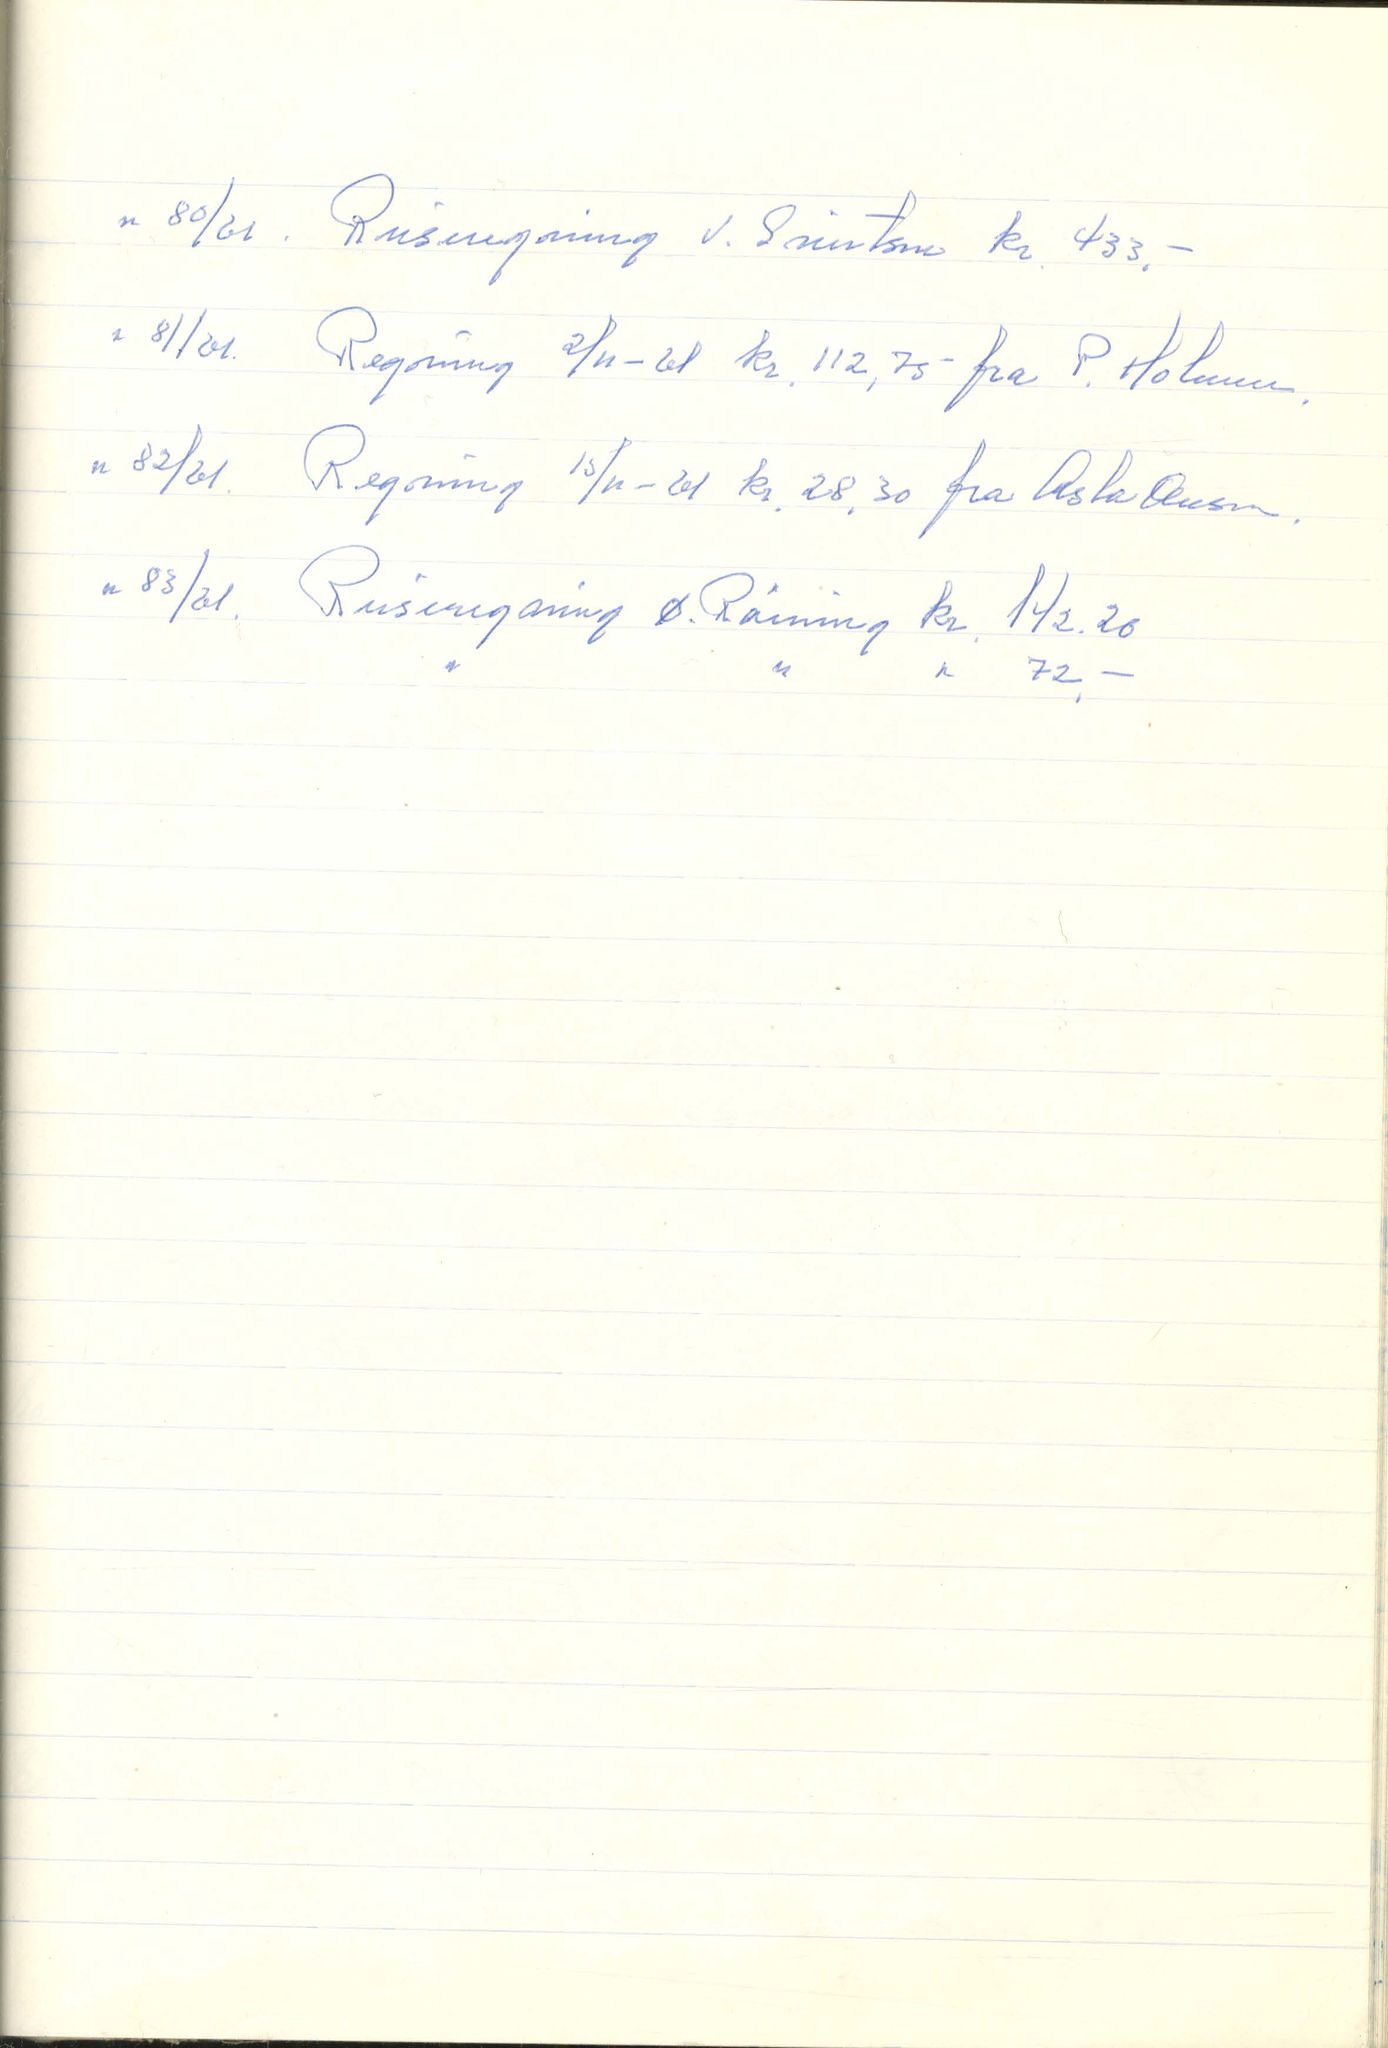 " 80/61. Reiseregning S. Sivertsen kr. 433,-
" 81/61. Regning 2/11-61 kr. 112,75 fra P. Holmen.
" 82/61. Regning 15/11-61 kr. 28,30 fra Asta
" 83/61. Reiseregning Ø. Råining kr. 142.20
" " " 72,-